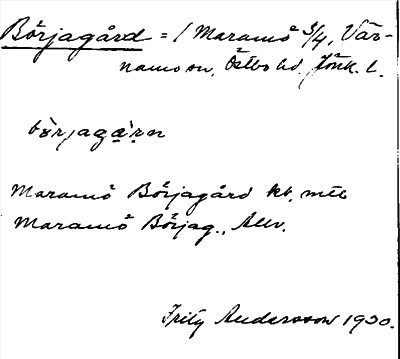 Börjagård = 1 Maramö 3/4, Vär-
namo sn, Östbo hd, Jönk. l.
bö̀rjagạ̊̀ṛn
Maramö Börjagård kt, mtb
Maramö Börjag., Allv.
Fritz Andersson 1930.